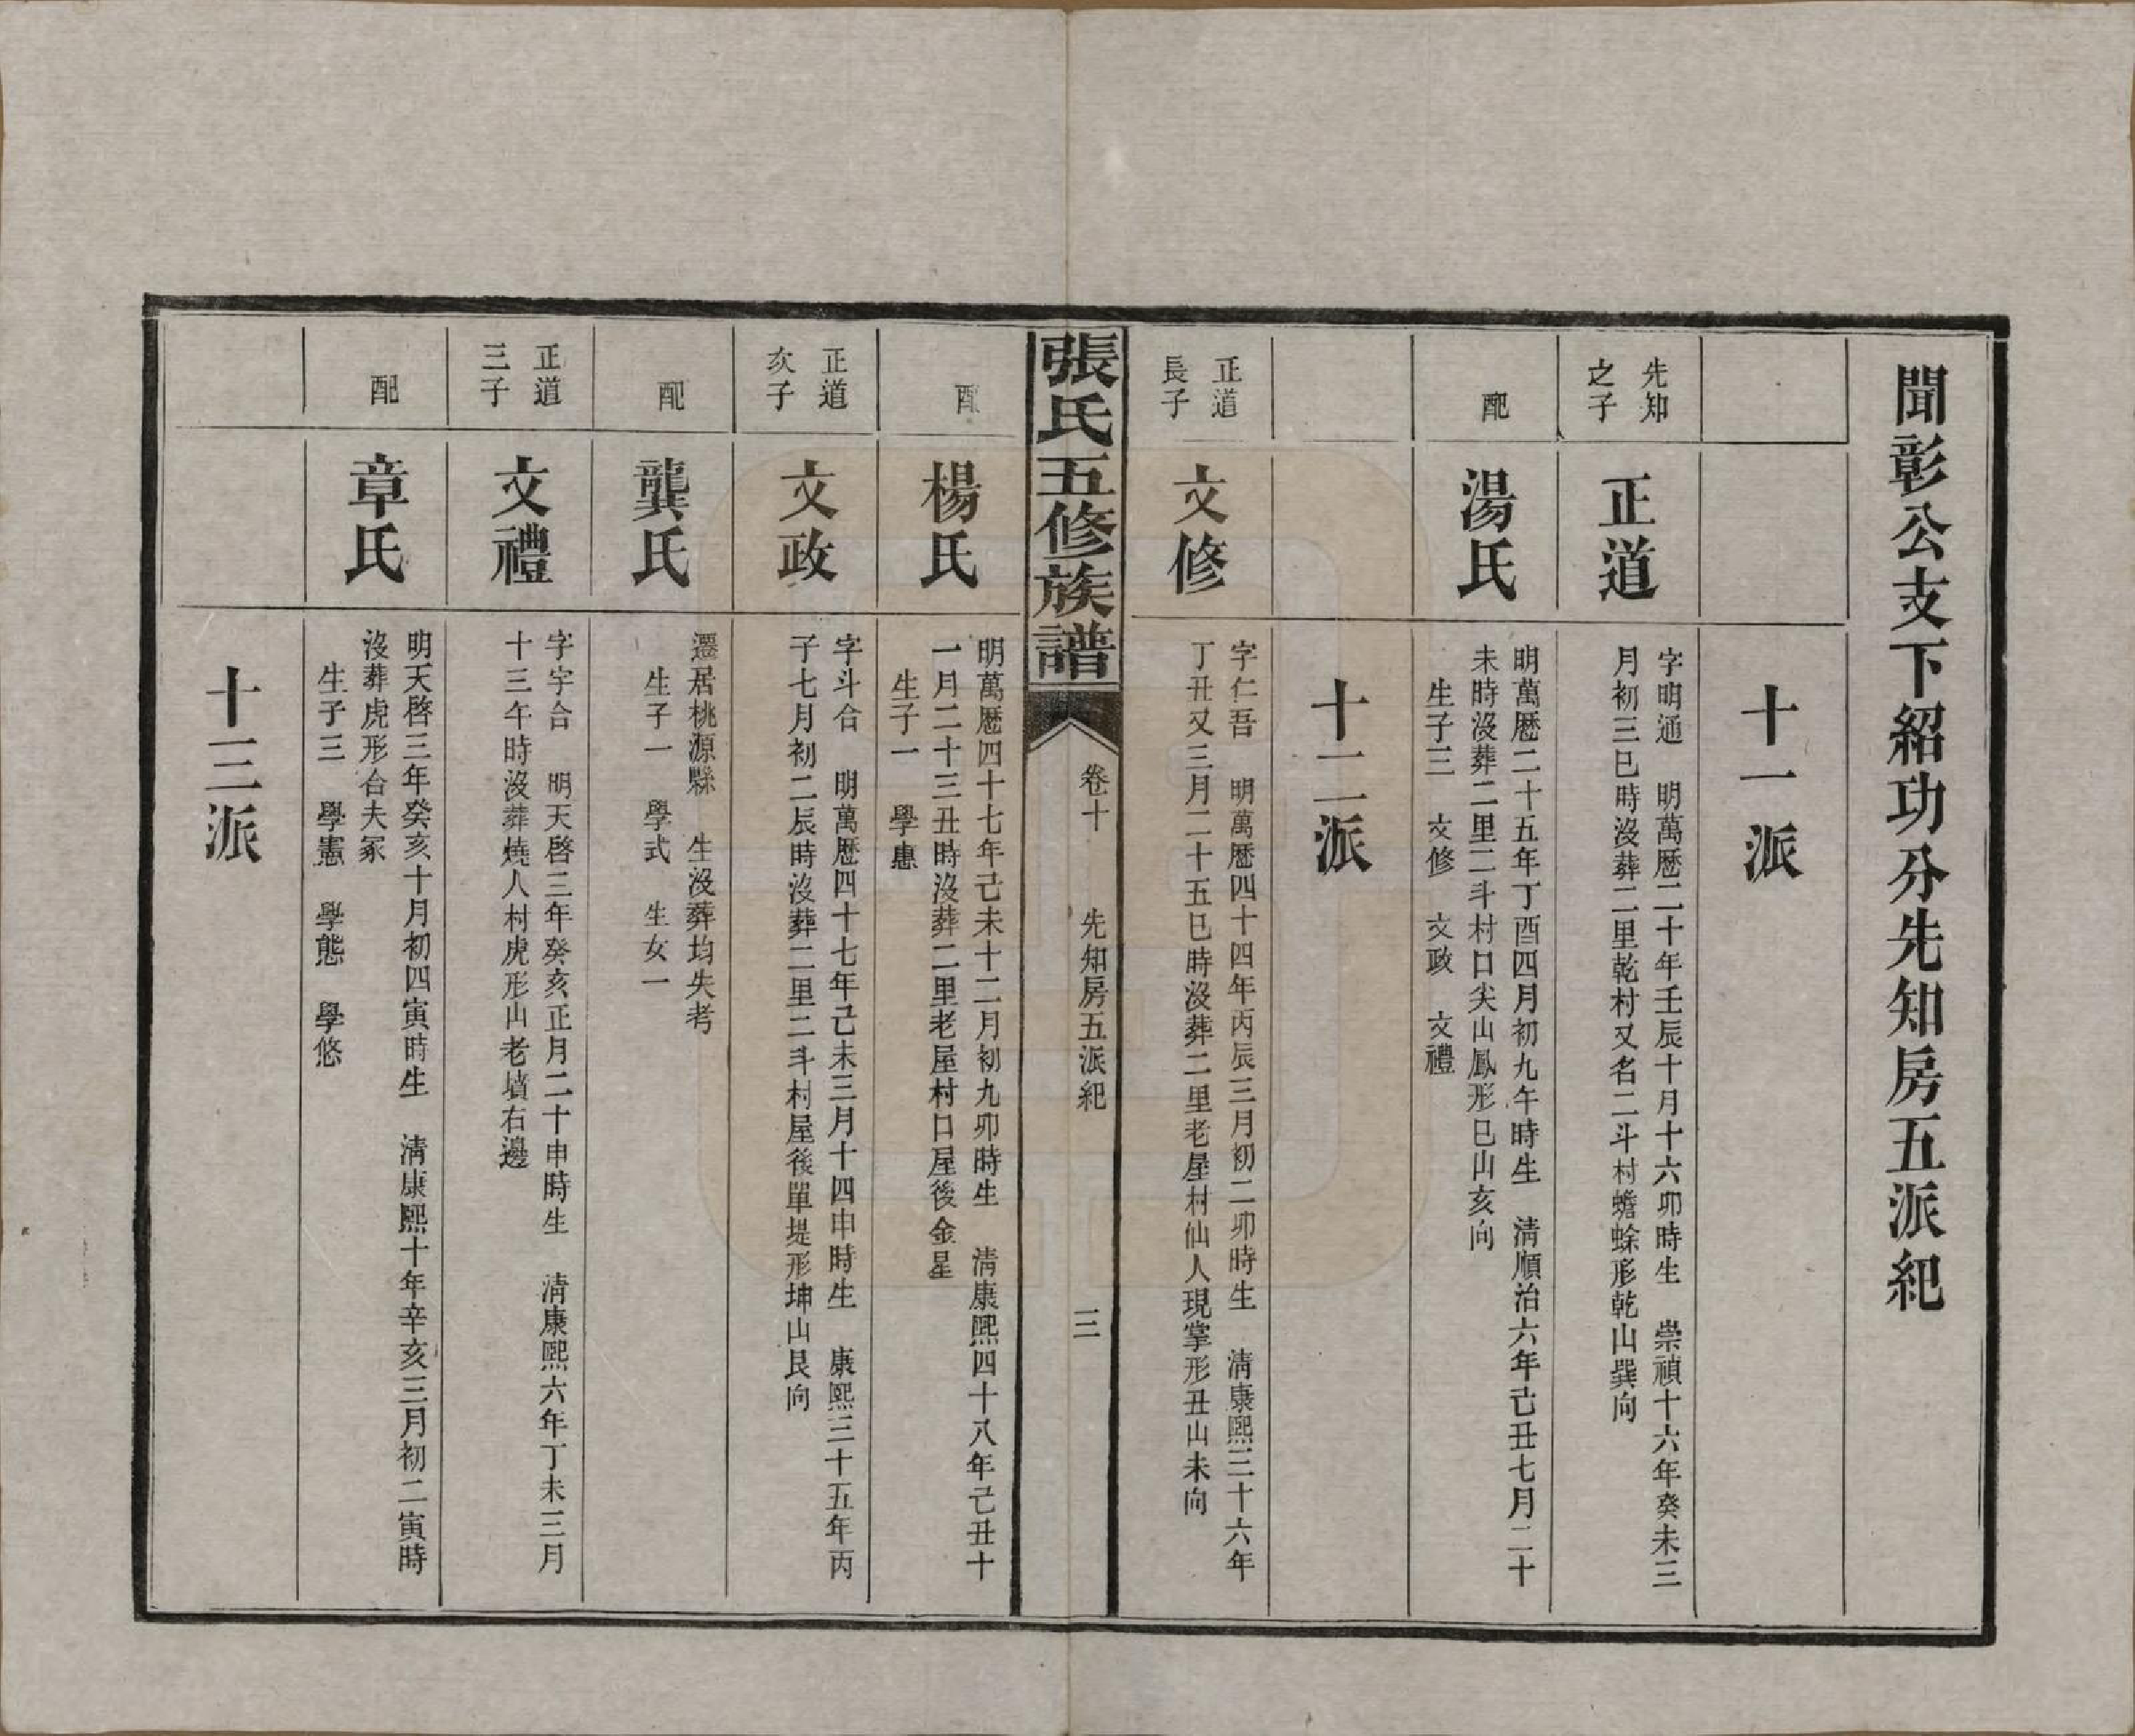 聞彰公支下紹功分先知房五派紀
十一派
先知
之子
正道
字明通　明萬曆二十年壬辰十月十六卯時生　崇禎十六年癸未三
月初三巳時沒葬二里乾村又名二斗村蟾蜍形乾山巽向
配
湯氏
明萬曆二十五年丁酉四月初九午時生　清順治六年己丑七月二十
未時沒葬二里二斗村口尖山鳳形巳山亥向
生子三　文修　文政　文禮
十二派
正道
長子
文修
字仁吾　明萬曆四十四年丙辰三月初二卯時生　清康熙三十六年
丁丑又三月二十五巳時沒葬二里老屋村仙人現掌形丑山未向
張氏五修族譜
卷十　先知房五派紀　三
配
楊氏
明萬曆四十七年己未十二月初九卯時生　清康熙四十八年己丑十
一月二十三丑時沒葬二里老屋村口屋後金星
生子一　學惠
正道
次子
文政
字斗合　明萬曆四十七年己未三月十四申時生　康熙三十五年丙
子七月初二辰時沒葬二里二斗村屋後單堤形坤山艮向
配
龔氏
遷居桃源縣　生沒葬均失考
生子一　學式　生女一
正道
三子
文禮
字宇合　明天啓三年癸亥正月二十申時生　清康熙六年丁未三月
十三午時沒葬燒人村虎形山老墳右邊
配
章氏
明天啓三年癸亥十月初四寅時生　清康熙十年辛亥三月初二寅時
沒葬虎形合夫冢
生子三　學憲　學態　學悠
十三派